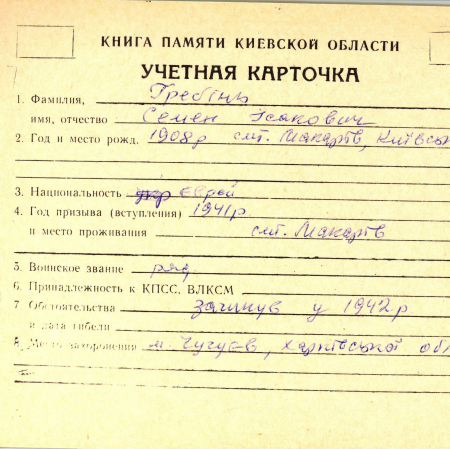 КНИГА ПАМЯТИ КИЕВСКОЙ ОБЛАСТИ
УЧЕТНАЯ КАРТОЧКА
1. Фамилия, Гребінь
имя, отчество Семен Ісакович
2. Год и место рожд. 1908р смт. Макарів, Київсь
3. Национальность укр єврей
4. Год призыва (вступления) 1941р.
и место проживания смт. Макарів
5. Воинское звание ряд
6. Принадлежность к КПСС, ВЛКСМ
7. Обстоятельства загинув у 1942р
и дата гибели
8. Место захоронения м. Чугуєв, Харківської обл